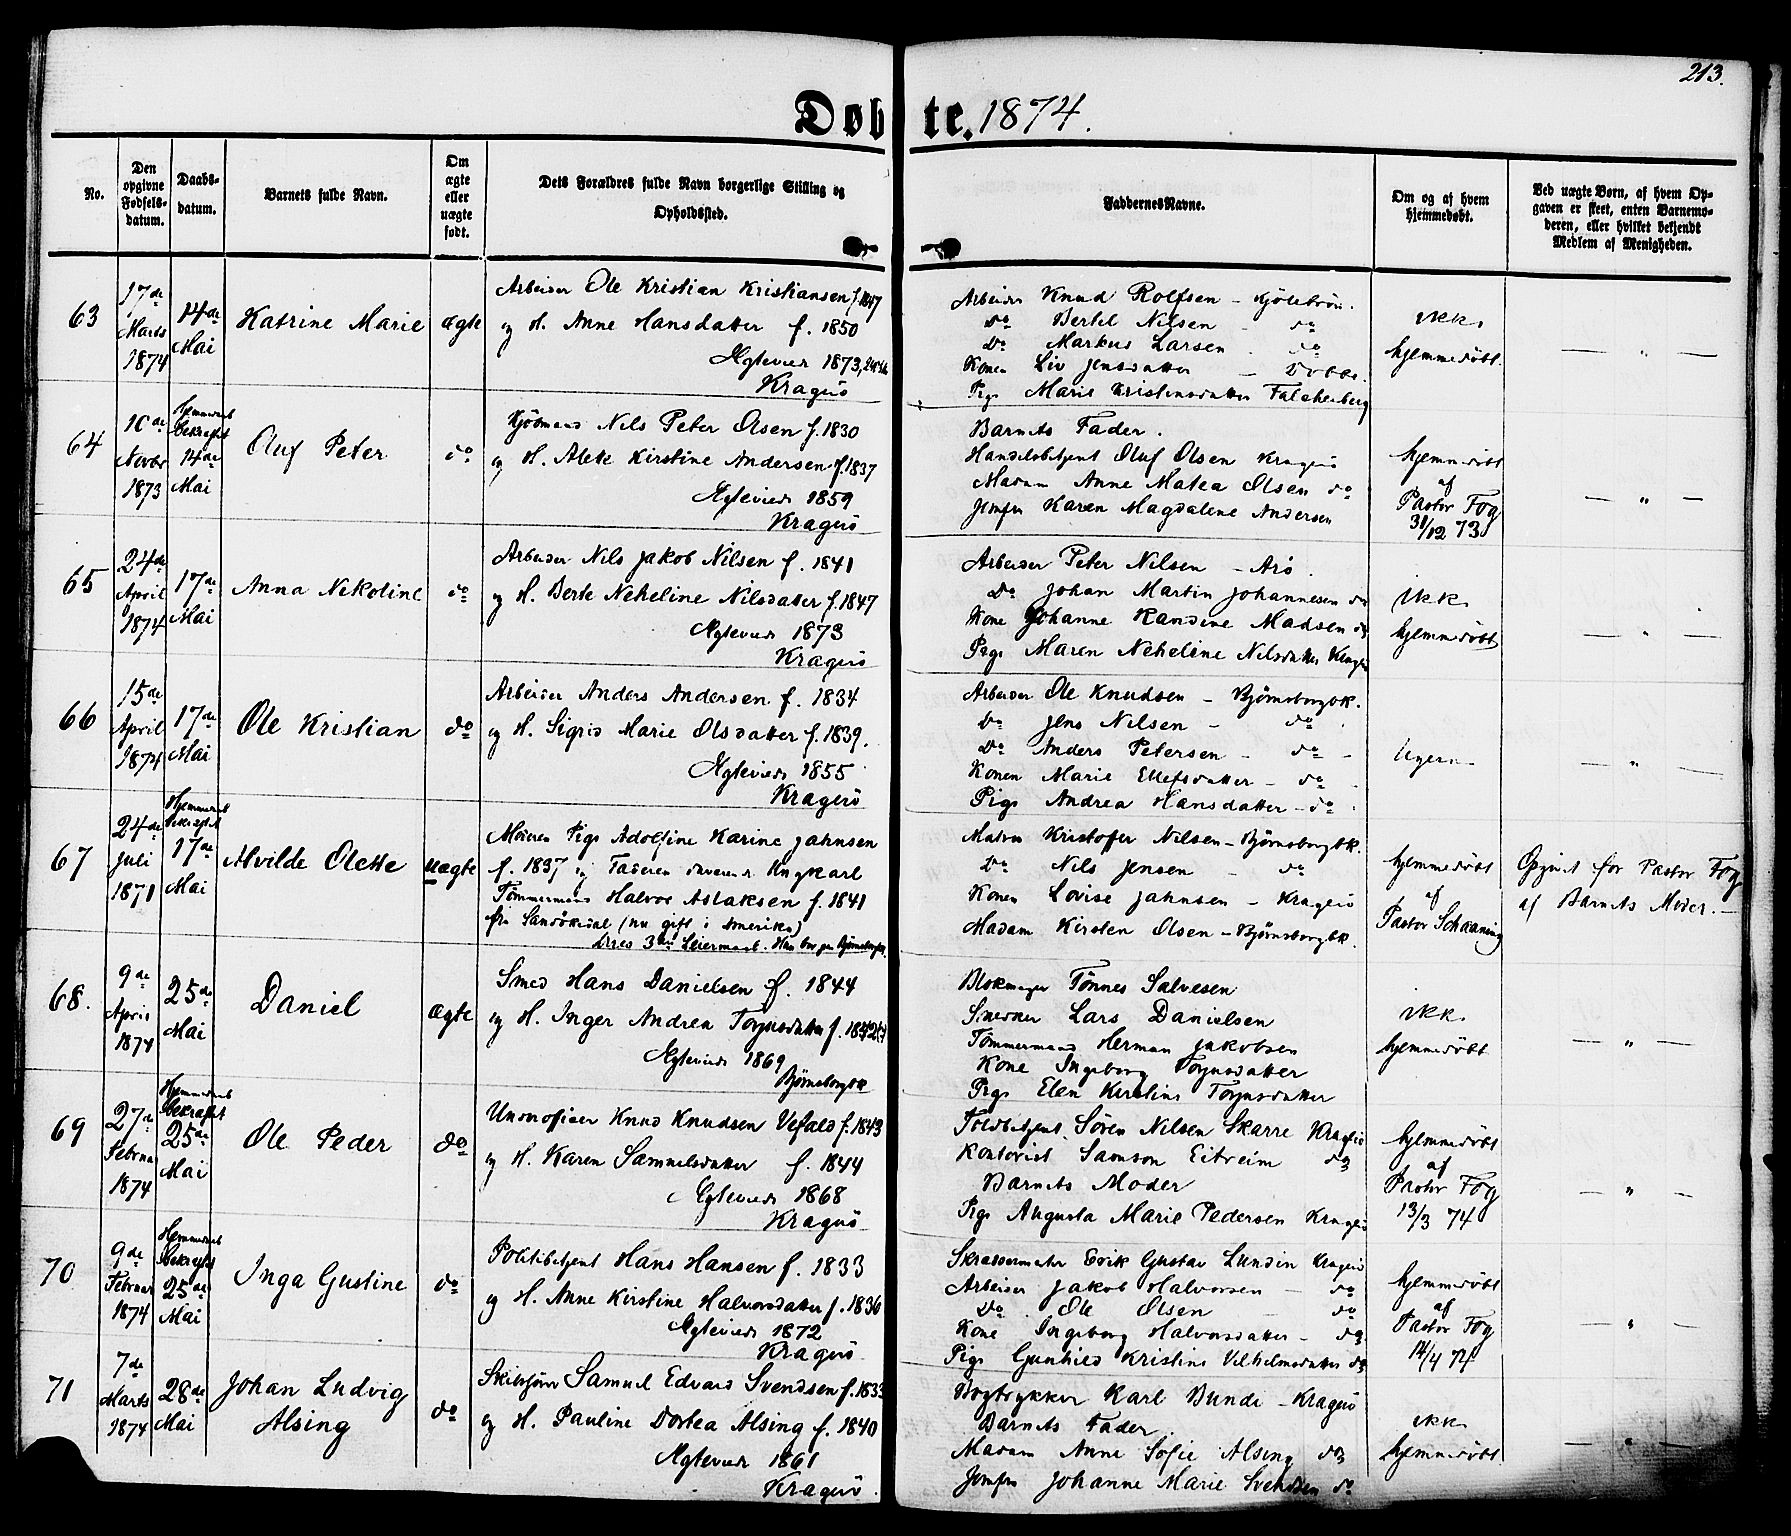 213.
Døbte. 1874.
No.
Den opgivne Fødsels-datum.
Daabs-datum.
Barnets fulde Navn.
Om ægte eller uægte født.
Dets Forældres fulde Navn borgerlige Stilling og Opholdssted.
Faddernes Navne.
Om og af hvem hjemmedøbt.
Ved uægte Børn, af hvem Opgaven er skeet, enten Barnemoderen, eller hvilket bekjendt Medlem af Menigheden.
63
17de Marts 1874
14de Mai
Katrine Marie
ægte
Arbeider Ole Kristian Kristiansen f. 1847
og H. Anne Hansdatter f. 1850
Ægteviede 1873,
Kragerö
Arbeider Knud Rolfsen -
Do Bertel Nilsen - do
Do Markus Larsen - do
Konen Liv Jensdatter -
Pige Marie Kristensdatter Falchenberg
ikke
hjemmedöbt
— " —
64
10de Novbr 1873
Hjemmedaab bekræftet 14de Mai
Oluf Peter
do
Kjöbmand Nils Peter Olsen f. 1830
og H. Alete Kirstine Andersen f. 1837
Ægteviede 1859
Kragerö
Barnets Fader.
Handelsbetjent Oluf Olsen Kragerö
Madam Anne Matea Olsen do
Jomfru Karen Magdalene Andersen
hjemmedöbt
af
Pastor Fog
31/12 73
— " —
65
24de April 1874
17de Mai
Anna Nekoline
do
Arbeider Nils Jakob Nilsen f. 1841
og H. Berte Neheline Nilsdatter f. 1847
Ægteviede 1873
Kragerö
Arbeider Peter Nilsen - Arö.
Do Johan Martin Johannesen do
Kone Johanne Randine Madsen do
Pige Maren Neheline Nilsdatter Kragerö
ikke
hjemmedöbt
— " —
66
15de April 1874
17de Mai
Ole Kristian
do
Arbeider Anders Andersen f. 1834
og H. Sigrid Marie Olsdatter f. 1839.
Ægteviede 1855
Kragerö
Arbeider Ole Knudsen - Bjørnsborgbk.
Do Jens Nilsen - do
Do Anders Petersen - do -
Konen Marie Ellefsdatter - do
Pige Andrea Hansdatter - do
— " —
67
24de Juli 1871
Hjemmedaab bekræftet 17de Mai
Alvilde Olette
uægte
Moderen Pige Adolfine Karine Jahnsen
f. 1837 og Faderen Ungkarl
Tömmermand Halvor Aslaksen f. 1841
fra Sandökedal (nu gift i Amerika)
Deres 3die Leiermaal. Hun bor paa Bjørnsborgbk.
Kristoffer Nilsen - Bjørnsborgbk.
Do Nils Jensen - do
Konen Lovise Jahnsen - Kragerö
Madam Kirsten Olsen - Bjørnsborgbk.
hjemmedöbt
af
Pastor Schaaning
Opgivet for Pastor Fog
af Barnets Moder. -
68.
9de April 1874
25de Mai
Daniel
ægte
Smed Hans Danielsen f. 1844
og H. Inger Andrea Torjusdatter f.
Ægteviede 1869
Bjørnsborgbk
Blokmager Tönnes Salvesen
Snedker Lars Danielsen
Tömmermand Herman Jakobsen
Kone Ingeborg Torjusdatter
Pige Elen Kirstine Torjusdatter
ikke
hjemmedöbt
— " —
69
27de Februar 1874
Hjemmedaab bekræftet 25de Mai
Ole Peder
do
Underofficer Knud Knudsen Vefald f. 1843
og H. Karen Samuelsdatter f. 1844
Ægteviede 1868
Kragerö
Toldbetjent Sören Nilsen Skarre Kragerö
Kontorist Samson Eitreim do
Barnets Moder
Pige Augusta Marie Pedersen Kragerö
hjemmedöbt
af
Pastor Fog
13/3 74
— " —
70
9de Februar 1874
Hjemmedaab bekræftet 25de Mai
Inga Gustine
do
Politibetjent Hans Hansen f. 1833
og H. Anne Kirstine Halvorsdatter f. 1836
Ægteviede 1872
Kragerö
Skræddermester Erik Gustav Lundin Kragerö
Arbeider Jakob Halvorsen - do
Do Ole Olsen - do
Kone Ingeborg Halvorsdatter - do
Pige Gunhild Kristine Vilhelmsdatter do
hjemmedöbt
af
Pastor Fog
14/4 74
— " —
71
7de Marts 1874
28de Mai
Johan Ludvig Alsing
do
Skibsförer Samuel Edvard Svendsen f. 1833
og H. Pauline Dortea Alsing f. 1840
Ægteviede 1861
Kragerö.
Bogtrykker Karl Bundi - Kragerö
Barnets Fader
Madam Anne Sofie Alsing do
Jomfru Johanne Marie Svendsen do
ikke
hjemmedöbt
— " —